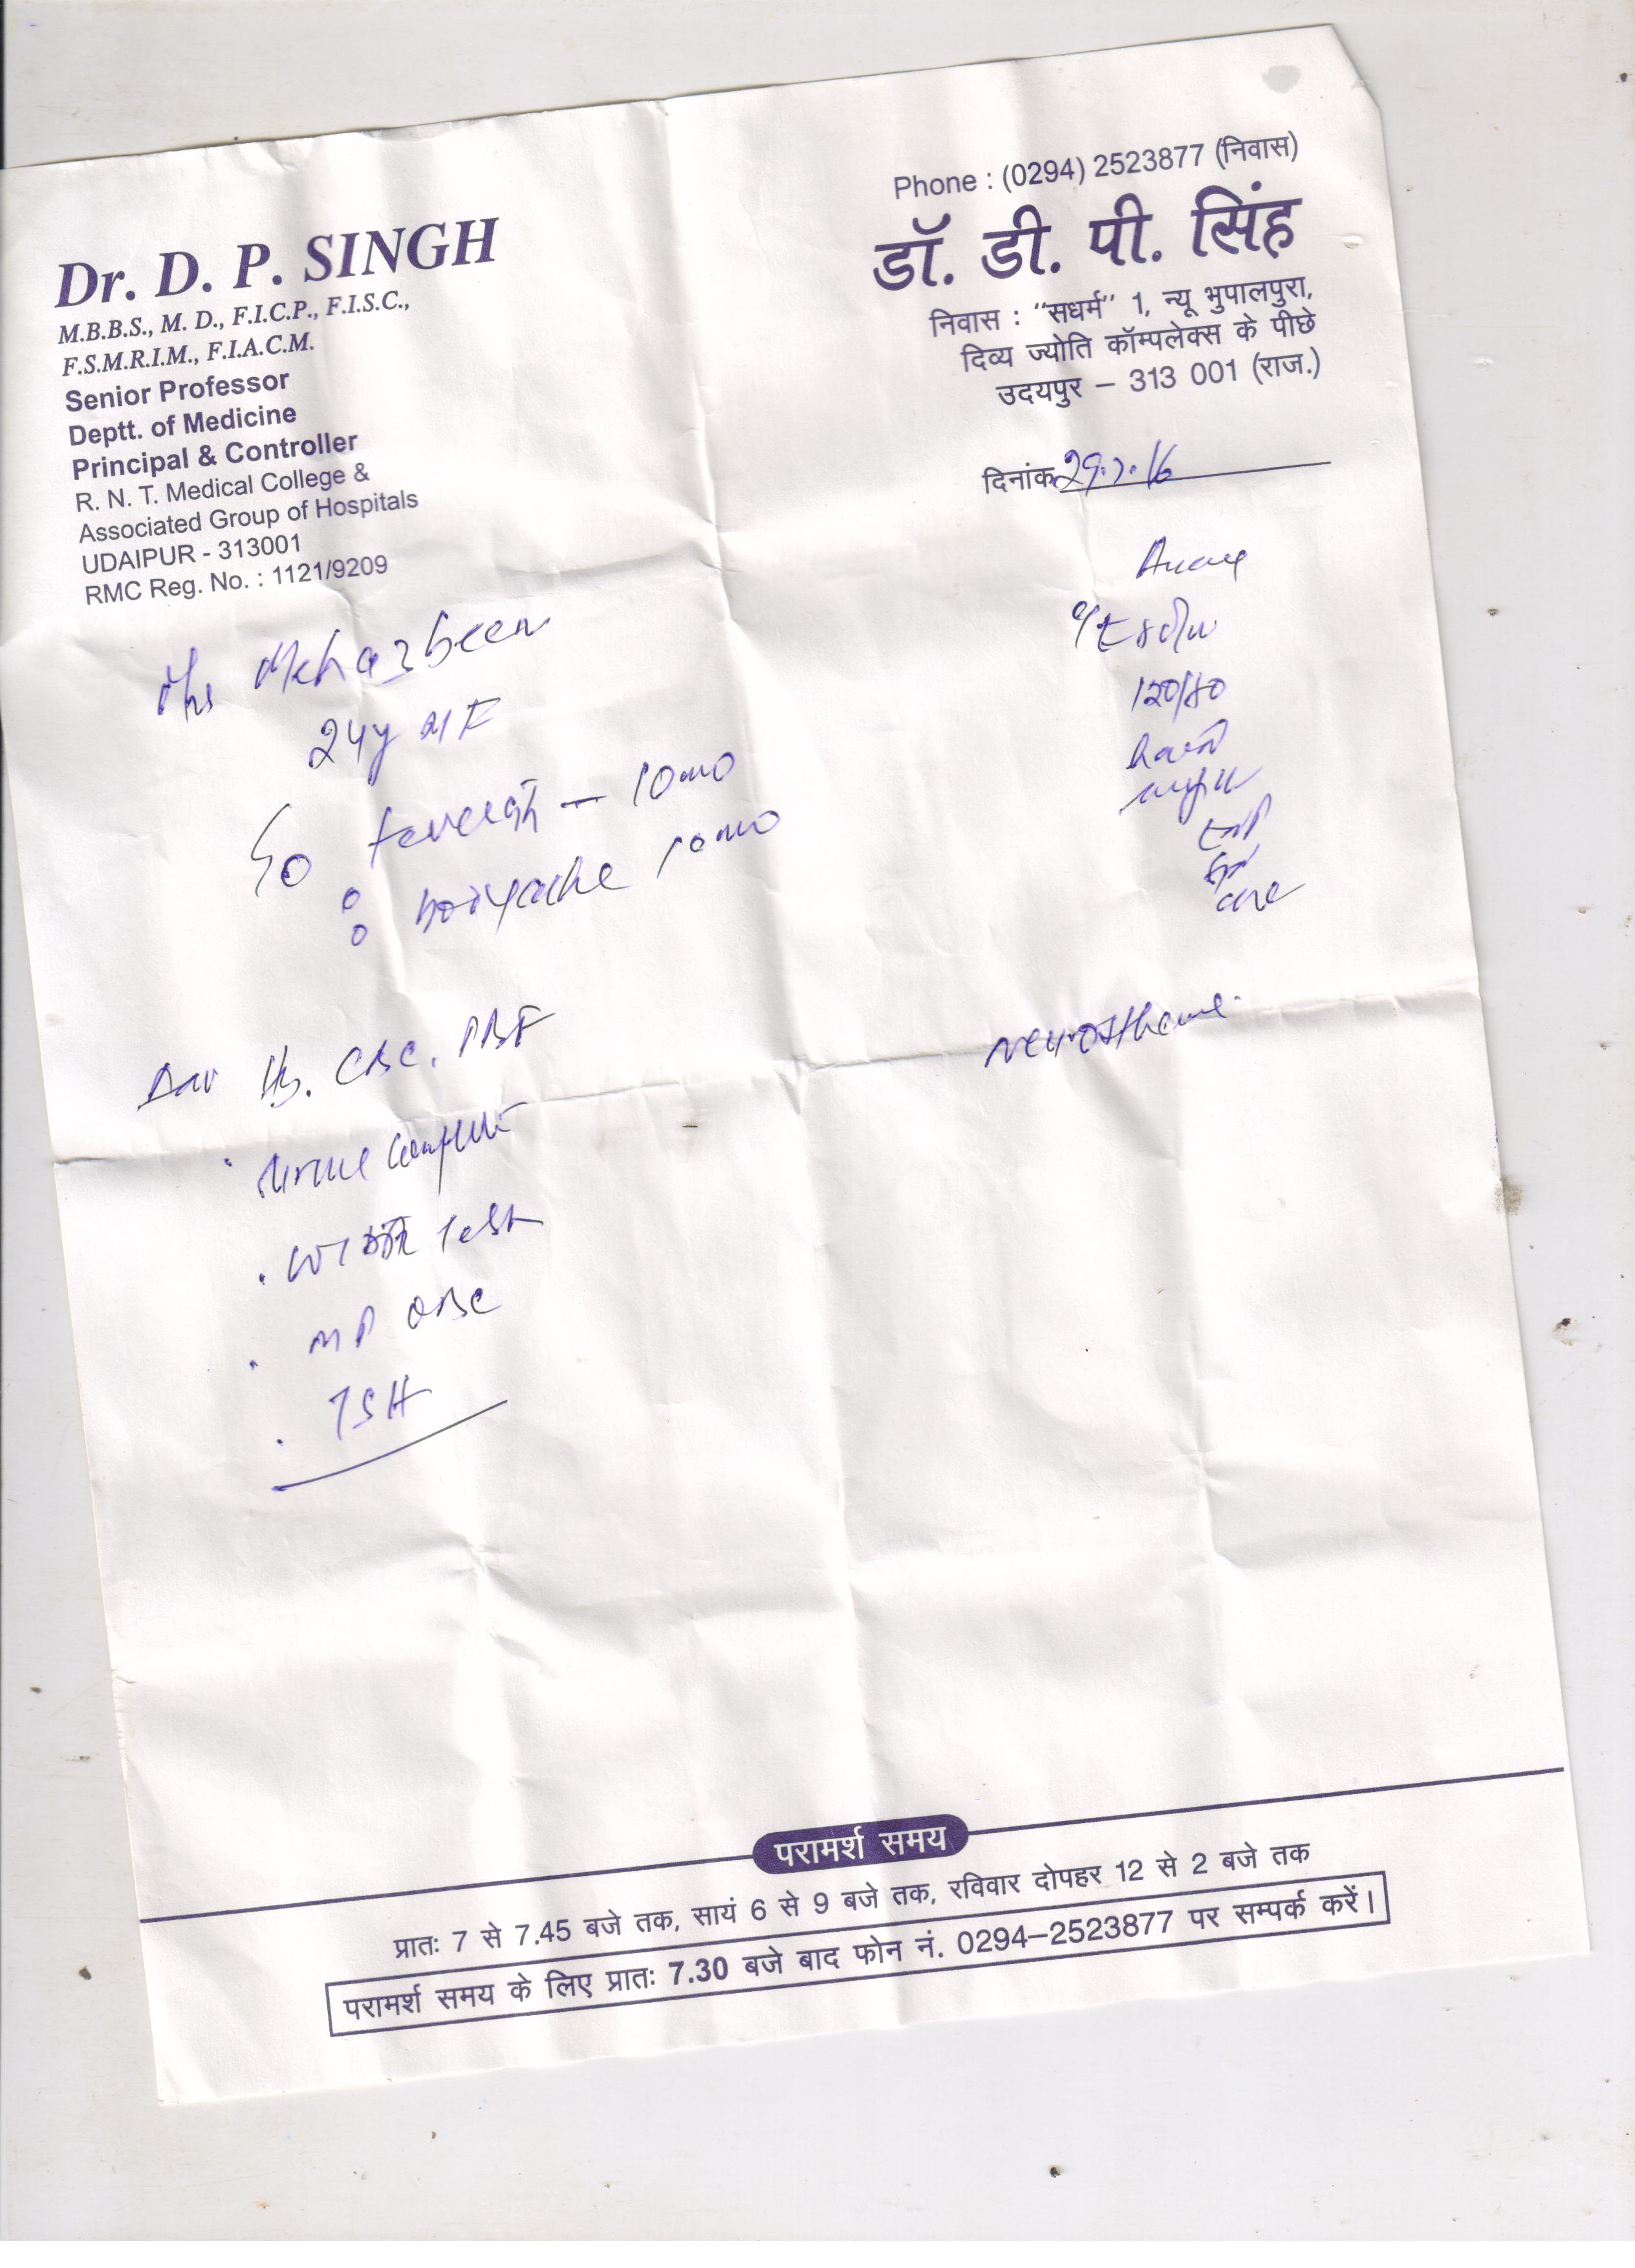 Phone : (0294) 2523877 (निवास)
Dr. D. P. SINGH
M.B.B.S., M. D., F.I.C.P., F.I.S.C.,
F.S.M.R.I.M., F.I.A.C.M.
Senior Professor
Deptt. of Medicine
Principal & Controller
R. N. T. Medical College &
Associated Group of Hospitals
UDAIPUR - 313001
RMC Reg. No. : 1121/9209
डॉ. डी. पी. सिंह
निवास : "सधर्म" 1, न्यू भुपालपुरा,
दिव्य ज्योति कॉम्पलेक्स के पीछे
उदयपुर – 313 001 (राज.)
दिनांक 29.7.16
Mehazbeen
24y
feverish – 10mo
bodyache 10mo
120/80
Neurosthenia
Adv Hb. CBC. PBF
Urine complete
Widal Test
MP QBC
TSH
परामर्श समय
प्रातः 7 से 7.45 बजे तक, सायं 6 से 9 बजे तक, रविवार दोपहर 12 से 2 बजे तक
परामर्श समय के लिए प्रातः 7.30 बजे बाद फोन नं. 0294–2523877 पर सम्पर्क करें।